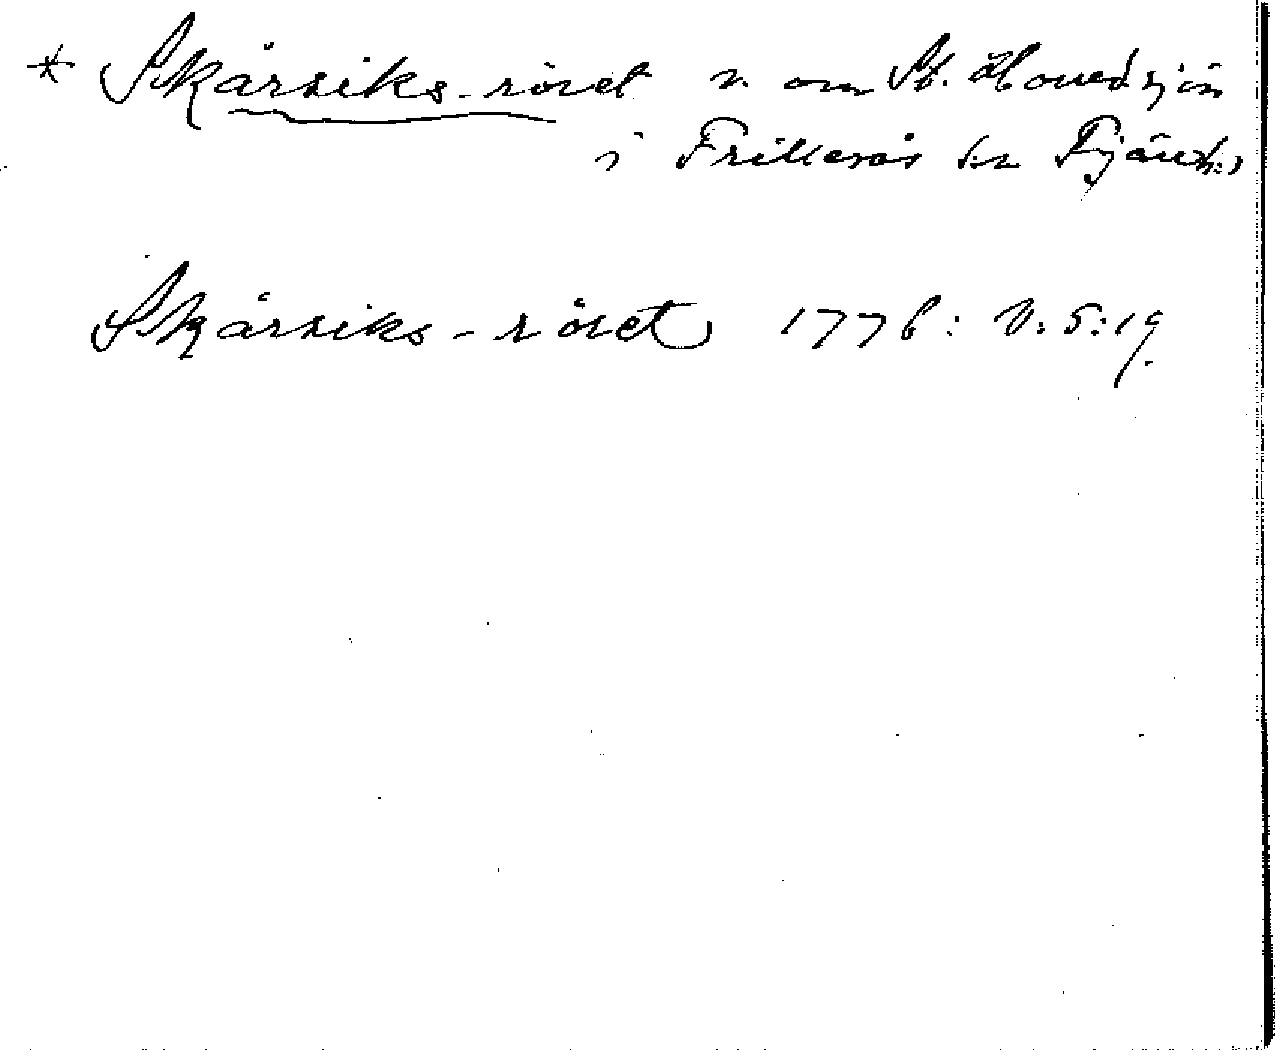 * Skårsiks-röset n om St. Hornedsjön
i Frillesås sn Fjäre h.
Skårsiks-röset 1776: V:5:19